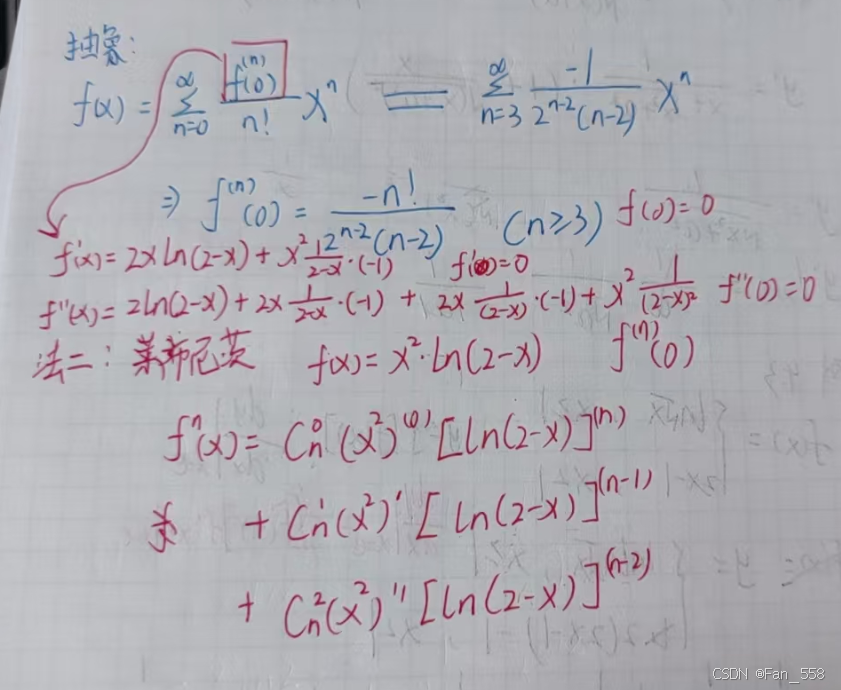 抽象:
f(x) = ∑_{n=0}^{∞} f^{(n)}(0)/n! x^n = ∑_{n=3}^{∞} -1/(2^{n-2}(n-2)) x^n
⇒ f^{(n)}(0) = -n!/(2^{n-2}(n-2)) (n≥3) f(0)=0
f'(x)= 2x ln(2-x) + x² 1/(2-x)·(-1) f'(0)=0
f''(x)= 2ln(2-x) + 2x 1/(2-x)·(-1) + 2x 1/(2-x)·(-1) + x² 1/(2-x)² f''(0)=0
法二: 莱布尼茨 f(x)= x²·ln(2-x) f^{(n)}(0)
f^n(x)= C_n^0 (x²)^{(0)} [ln(2-x)]^{(n)}
+ C_n^1 (x²)' [ln(2-x)]^{(n-1)}
+ C_n^2 (x²)'' [ln(2-x)]^{(n-2)}
CSDN @Fan_558